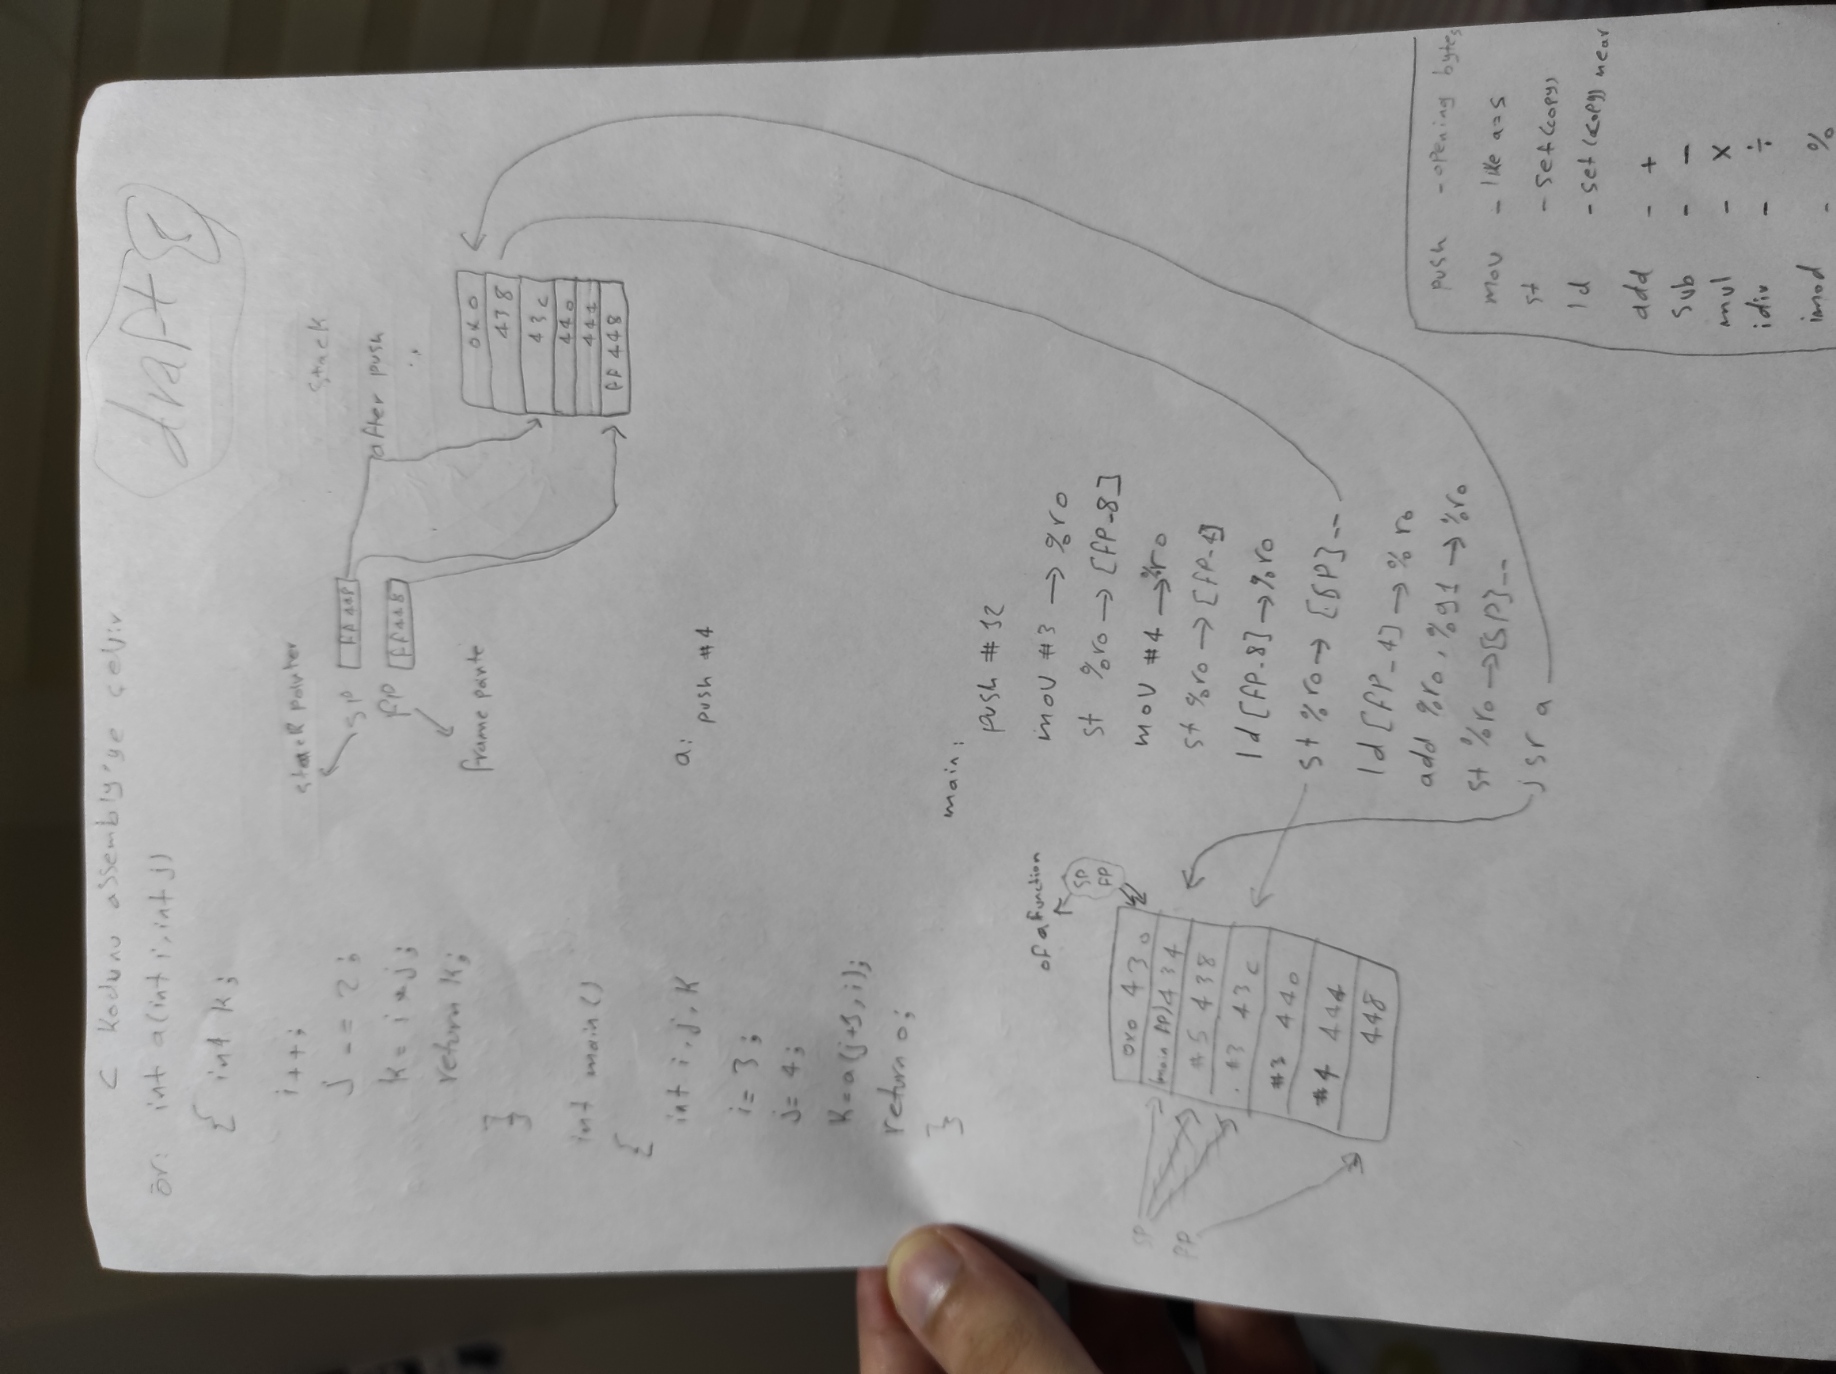 C kodunu assembly'ye çevir
draft
ör: int a(int i, int j)
{ int k;
i++;
j -= 2;
k = i * j;
return k;
}
int main()
{
int i, j, k
i = 3;
j = 4;
k = a(j+1, i);
return 0;
}
stack pointer
SP
FP FF448
frame pointe
stack
after push
0x0
438
43c
440
444
FF 448
a:
push #4
main:
push #12
mov #3 → %r0
st %r0 → [FP-8]
mov #4 → %r0
st %r0 → [FP-4]
ld [FP-8] → %r0
st %r0 → [SP]--
ld [FP-4] → %r0
add %r0, %g1 → %r0
st %r0 → [SP]--
jsr a
of a function
SP
FP
SP
FP
0x0 430
(main FP) 434
#5 438
#3 43c
#3 440
#4 444
448
push - opening bytes
mov - like a=5
st - set (copy)
ld - set (copy) near
add - +
sub - -
imul - x
idiv - ÷
imod - %